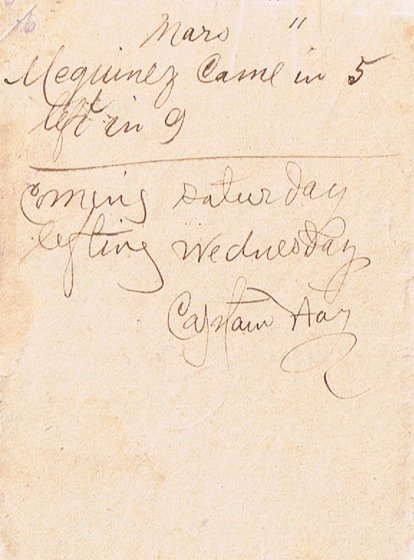 Mars "
Mequinez Came in 5
left in 9
Coming Saturday
lefting Wednesday
Captain Hay